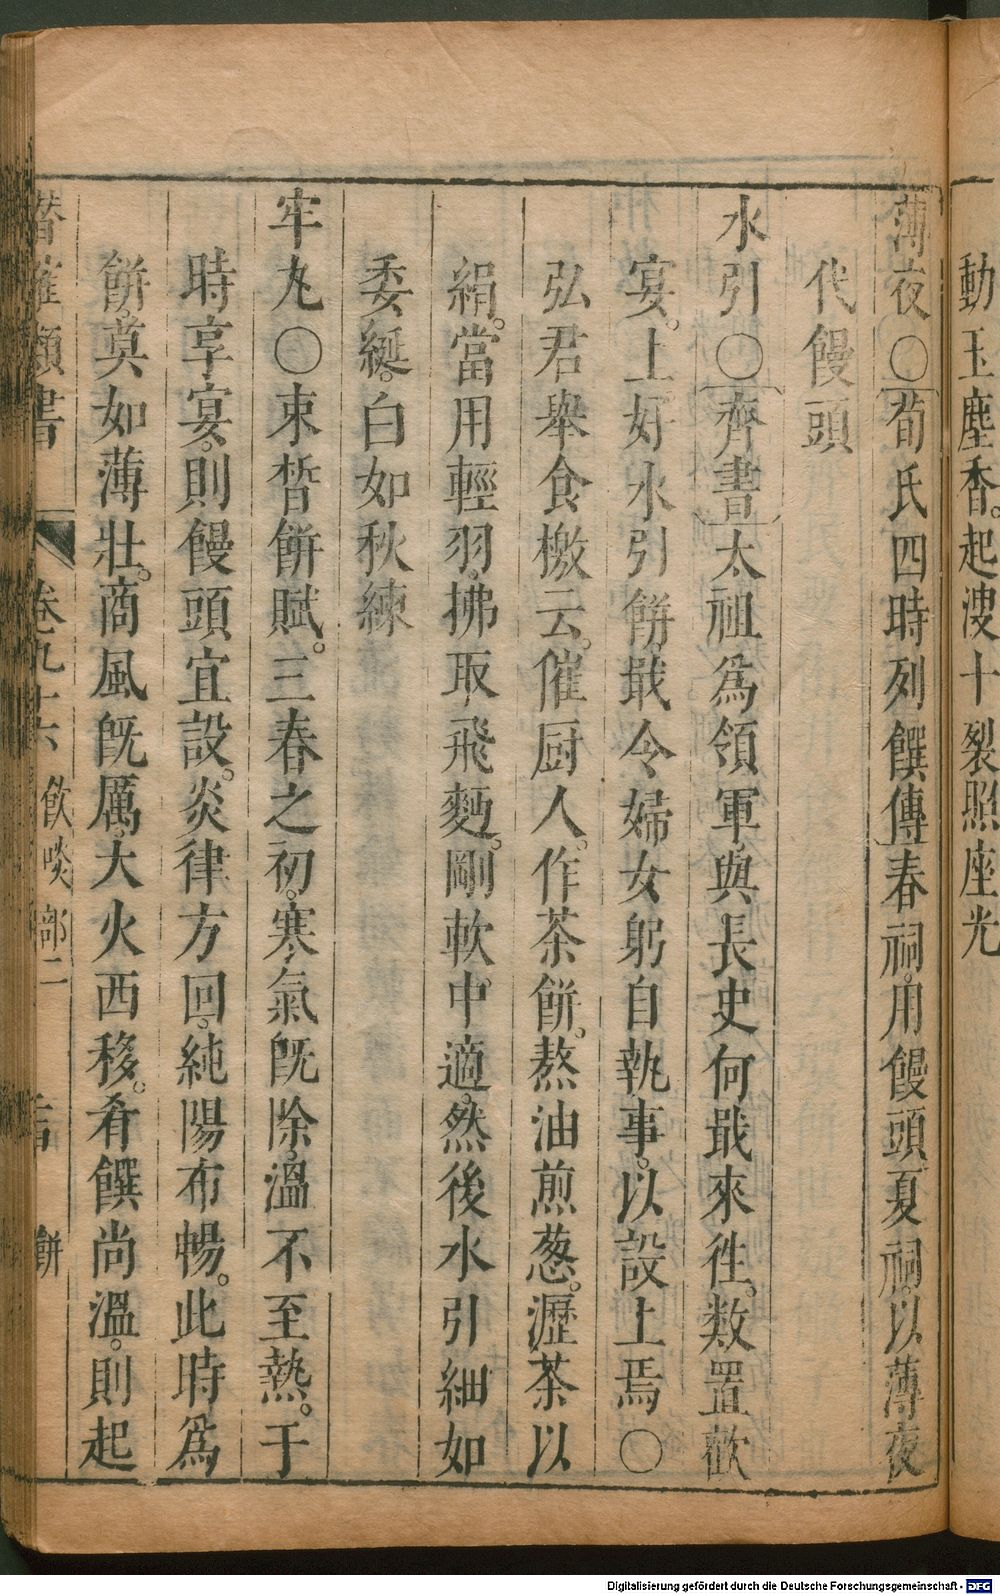 動玉塵香。起溲十裂照座光
薄夜〇荀氏四時列饌傳春祠。用饅頭夏祠。以薄夜
代饅頭
水引〇齊書太祖爲領軍與長史何戢來徃。數置歡
宴。上好水引餅。戢令婦女躬自執事。以設上焉〇
弘君舉食檄云。催厨人。作茶餅。熬油煎葱。瀝茶以
絹。當用輕羽。拂取飛麪。剛軟中適。然後水引細如
委綖。白如秋練
牢丸〇束晳餅賦。三春之初。寒氣旣除。溫不至熱。于
時享宴。則饅頭宜設。炎律方回。純陽布暢。此時爲
餅。莫如薄壯。商風旣厲。大火西移。肴饌尚溫。則起
潛確類書 卷九十六 飲啖部二 餅
Digitalisierung gefördert durch die Deutsche Forschungsgemeinschaft - DFG